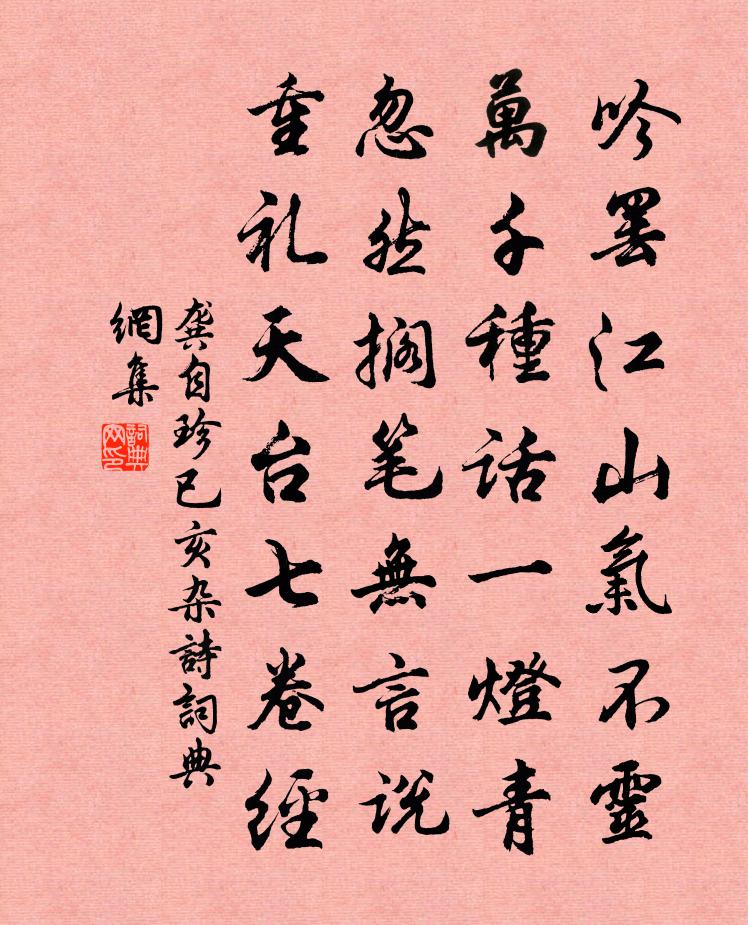 吟罢江山氣不靈
萬千種話一燈青
忽然搁笔無言説
重礼天台七卷經
龔自珍已亥杂詩詞典
網集
詞典
网印